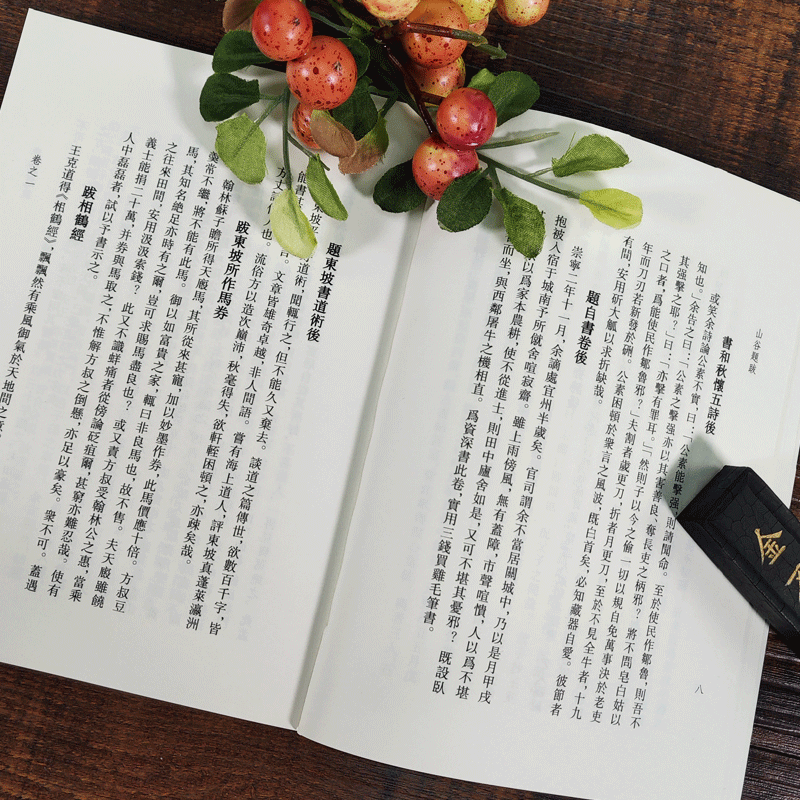 山谷題跋
書和秋懷五詩後
或笑余詩論公素不實,曰:「公素能擊强,則請聞命。至於使民作鄒魯,則吾不
知也。」余告之曰:「公素之擊强亦以其害善良、奪長吏之柄邪?將不問皂白姑以
其强擊之耶?」曰:「亦擊有罪耳。」「然則子以今之偷一切以規自免萬事決於老吏
之口者,爲能使民作鄒魯邪?」夫割者歲更刀,折者月更刀,至於不見全牛者,十九
年而刀刃若新發於硎。公素困頓於衆言之風波,既白首矣,必知藏器自愛。彼節者
有間,安用斫大觚以求折缺哉。
題自書卷後
崇寧二年十一月,余謫處宜州半歲矣。官司謂余不當居關城中,乃以是月甲戌
抱被入宿于城南予所僦舍喧寂齋。雖上雨傍風,無有蓋障,市聲喧憒,人以爲不堪
其以爲家本農耕,使不從進士,則田中廬舍如是,又可不堪其憂邪?既設臥
而坐,與西鄰屠牛之机相直。爲資深書此卷,實用三錢買雞毛筆書。
八
題東坡書道術後
東坡道術,聞輒行之,但不能久又棄去。談道之篇傳世,欲數百千字,皆
能書其。文章皆雄奇卓越,非人間語。嘗有海上道人,評東坡真蓬萊瀛洲
方丈謫人也。流俗方以造次顛沛,秋毫得失,欲軒輊困頓之,亦疎矣哉。
跋東坡所作馬券
翰林蘇子瞻所得天廄馬,其所從來甚寵,加以妙墨作券,此馬價應十倍。方叔豆
羹常不繼,將不能有此馬。御以如富貴之家,輒曰非良馬也,故不售。夫天廄雖饒
馬,其知名絕足亦時有之爾,豈可求賜馬盡良也?或又責方叔受翰林公之惠,當乘
之往來田間,安用汲汲索錢?此又不識蛘痛者從傍論砭疽爾,甚窮亦難忍哉。使有
義士能捐二十萬,并券與馬取之,不惟解方叔之倒懸,亦足以豪矣。衆不可。蓋遇
人中磊磊者,試以予書示之。
跋相鶴經
王克道得《相鶴經》,飄飄然有乘風御氣於天地間之意。
卷之一
金